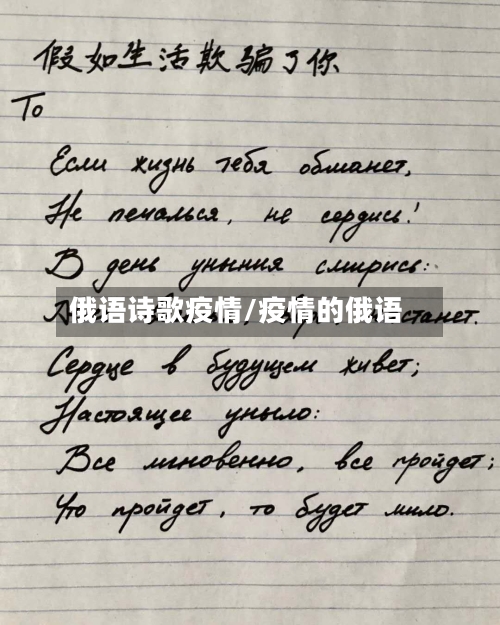 假如生活欺骗了你
To
Если жизнь тебя обманет,
Не печалься, не сердись!
В день уныния смирись:
俄语诗歌疫情/疫情的俄语
станет.
Сердце в будущем живет;
Настоящее уныло:
Все мгновенно, все пройдет;
Что пройдет, то будет мило.